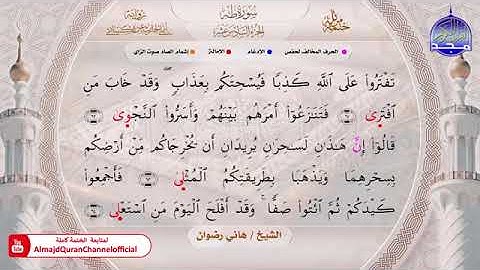 سُورَةُ طه
الحرف المخالف لحفص
الإدغام
الإمالة
إشمام الصاد صوت الزاي
تَفْتَرُوا۟ عَلَى ٱللَّهِ كَذِبًا فَيُسْحِتَكُم بِعَذَابٍۢ ۖ وَقَدْ خَابَ مَنِ
ٱفْتَرَىٰ ۝٦١ فَتَنَٰزَعُوٓا۟ أَمْرَهُم بَيْنَهُمْ وَأَسَرُّوا۟ ٱلنَّجْوَىٰ ۝٦٢
قَالُوٓا۟ إِنَّ هَٰذَٰنِ لَسَٰحِرَٰنِ يُرِيدَانِ أَن يُخْرِجَاكُم مِّنْ أَرْضِكُم
بِسِحْرِهِمَا وَيَذْهَبَا بِطَرِيقَتِكُمُ ٱلْمُثْلَىٰ ۝٦٣ فَأَجْمِعُوا۟
كَيْدَكُمْ ثُمَّ ٱئْتُوا۟ صَفًّۭا ۚ وَقَدْ أَفْلَحَ ٱلْيَوْمَ مَنِ ٱسْتَعْلَىٰ ۝٦٤
الشيخ / هاني رضوان
لمتابعة الختمة كاملة
AlmajdQuranChannelofficial
YouTube